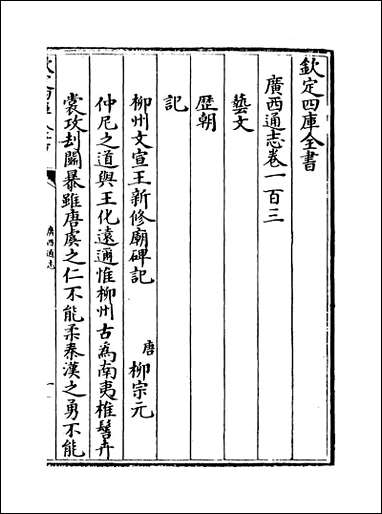 欽定四庫全書
廣西通志卷一百三
藝文
歴朝
記
柳州文宣王新修廟碑記 唐 柳宗元
仲尼之道與王化逺邇惟柳州古為南夷椎髻卉
裳攻刦鬭暴雖唐虞之仁不能柔秦漢之勇不能
廣西通志
一